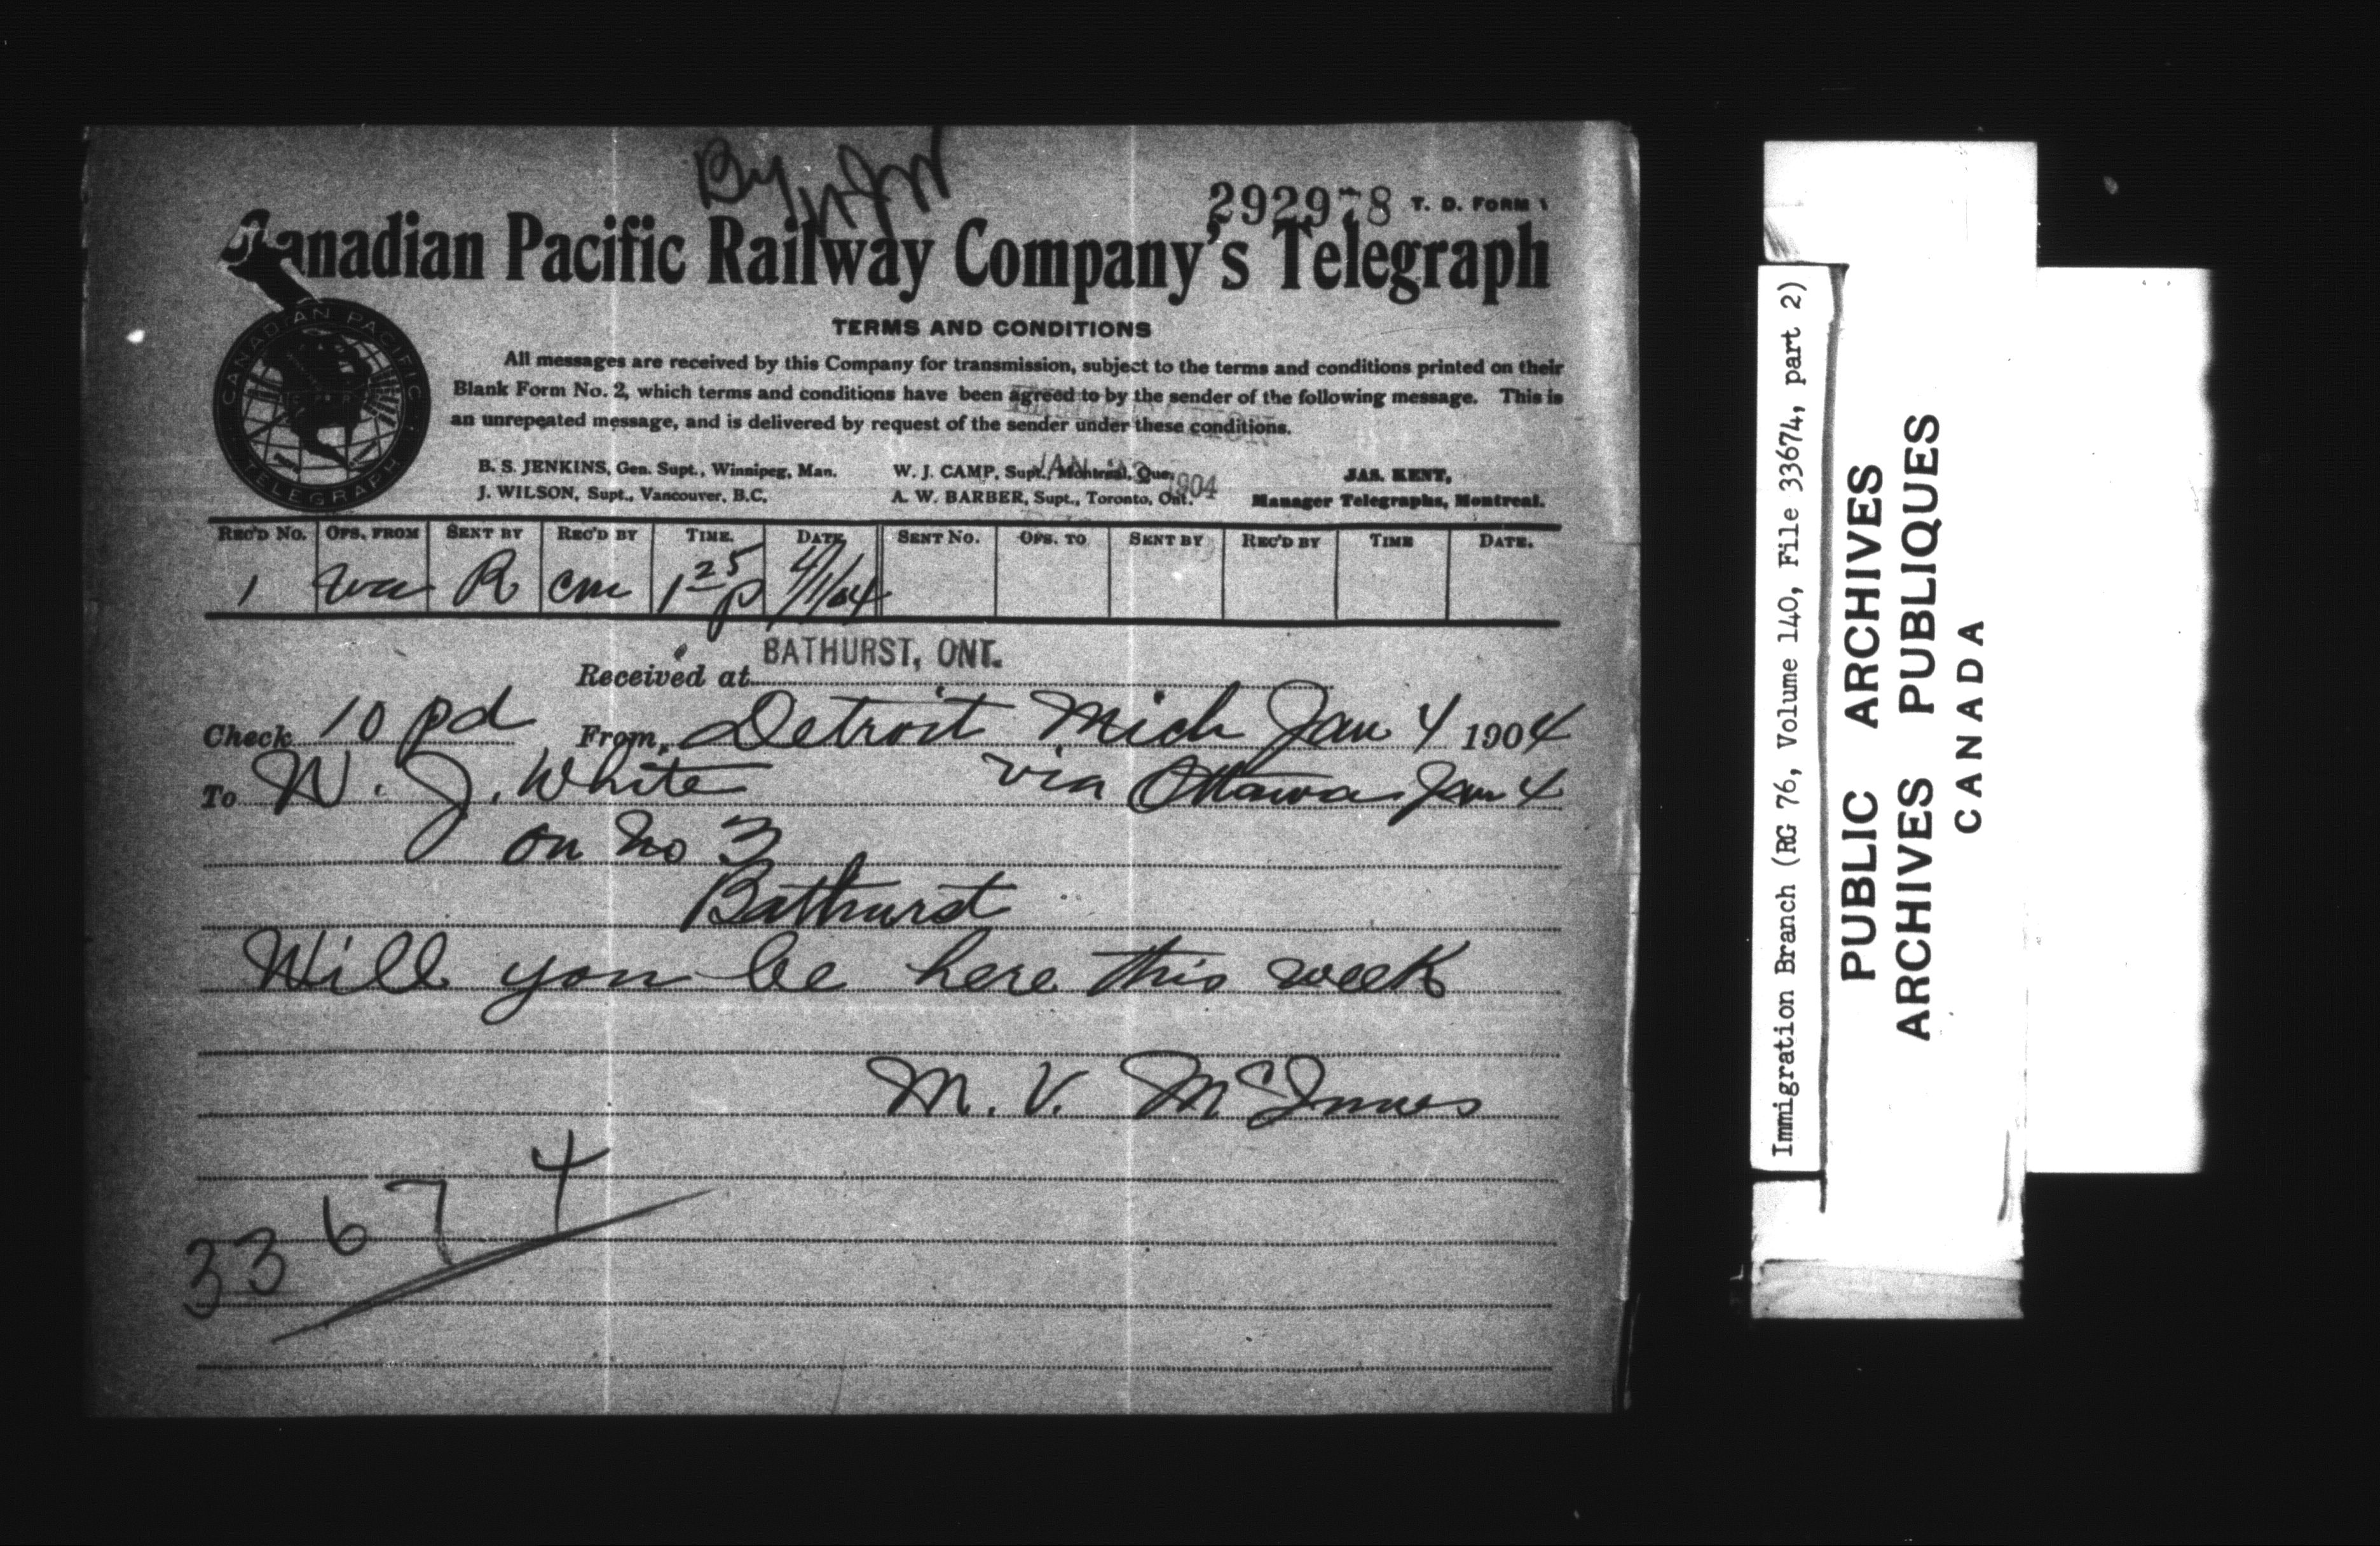 By WJW
292978 T. D. FORM 1
Canadian Pacific Railway Company's Telegraph
CANADIAN PACIFIC
TELEGRAPH
TERMS AND CONDITIONS
All messages are received by this Company for transmission, subject to the terms and conditions printed on their
Blank Form No. 2, which terms and conditions have been agreed to by the sender of the following message. This is
an unrepeated message, and is delivered by request of the sender under these conditions.
JAN 1904
B. S. JENKINS, Gen. Supt., Winnipeg, Man. W. J. CAMP, Supt., Montreal, Que. JAS. KENT,
J. WILSON, Supt., Vancouver, B.C. A. W. BARBER, Supt., Toronto, Ont. Manager Telegraphs, Montreal.
REC'D NO. OFS. FROM SENT BY REC'D BY TIME. DATE SENT NO. OFS. TO SENT BY REC'D BY TIME DATE.
1 wa R cm 1 25 p 4/1/04
Received at BATHURST, ONT.
Check 10 pd From, Detroit Mich Jan 4 1904
To W. J. White via Ottawa Jan 4
on No 3
Bathurst
Will you be here this week
M. V. McInnes
33674
Immigration Branch (RG 76, Volume 140, File 33674, part 2)
PUBLIC ARCHIVES
ARCHIVES PUBLIQUES
CANADA